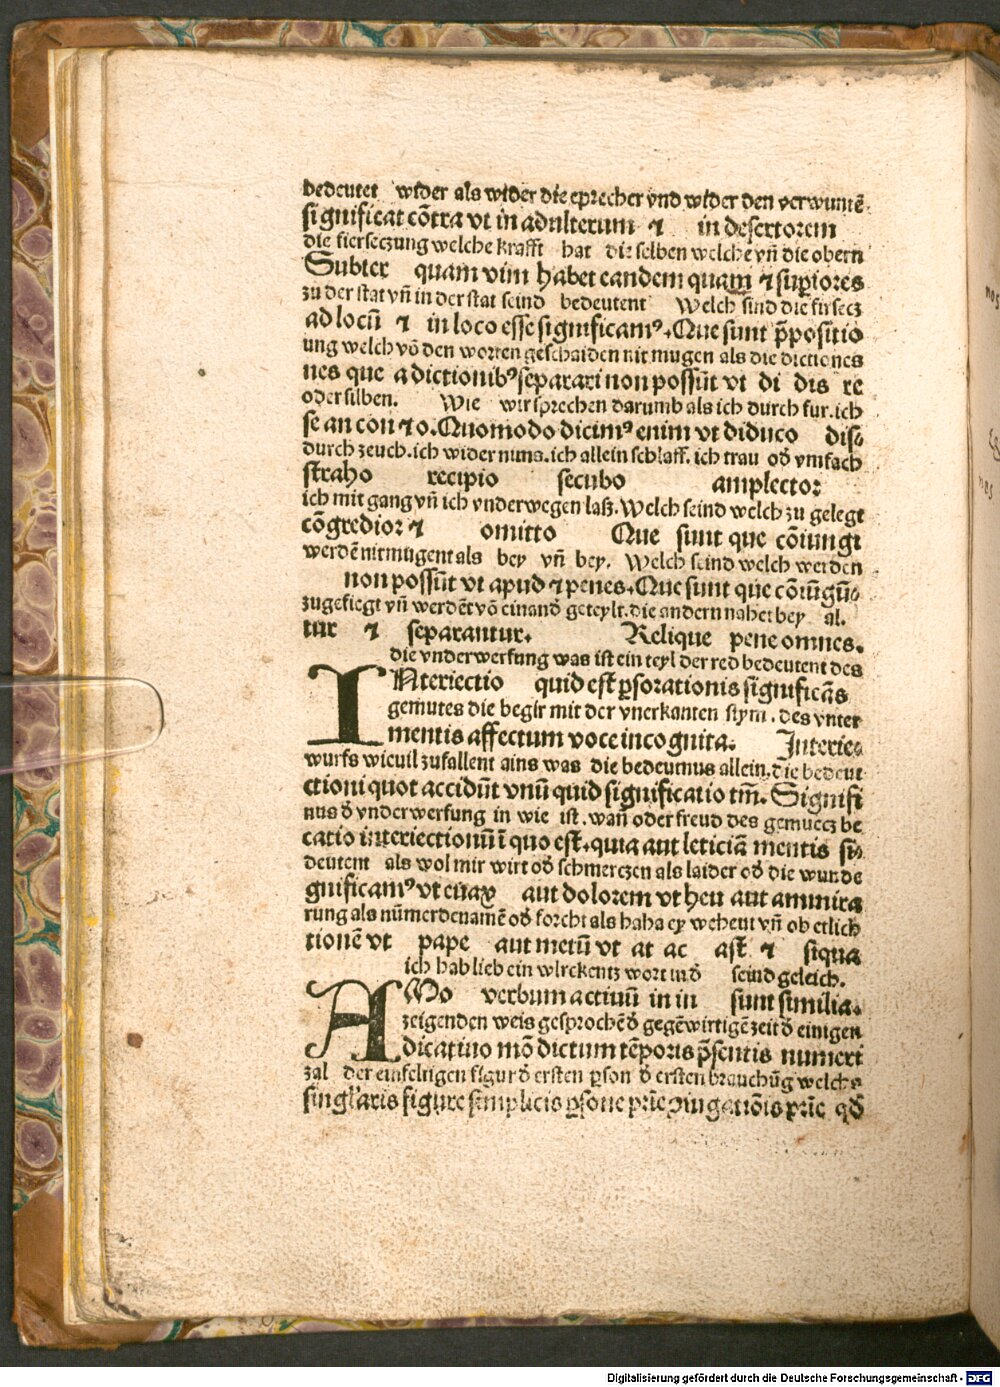 bedeutet wider als wider die eprecher vnd wider den verwuntē
significat cōtra vt in adulterum ⁊ in desertorem
die fierseczung welche krafft hat die selben welche vn̄ die obern
Subter quam vim habet eandem quam ⁊ suꝑiores
zu der stat vn̄ in der stat seind bedeutent Welch sind die fürsecz
ad locū ⁊ in loco esse significamꝰ. Que sunt p̄positio
ung welch vō den worten geschaiden nit mugen als die dictiones
nes que a dictionibꝰ separari non possūt vt di dis re
oder silben. Wie wir sprechen darumb als ich durch fur. ich
se an con ⁊ o. Quomodo dicimꝰ enim vt diduco dis⸗
durch zeuch. ich wider nuns. ich allein schlaff. ich trau od̄ vmfach
straho recipio secubo amplector
ich mit gang vn̄ ich vnderwegen laß. Welch seind welch zu gelegt
cōgredior ⁊ omitto Que sunt que cōiungi
werdē nit mugent als bey vn̄ bey. Welch seind welch werden
non possūt vt apud ⁊ penes. Que sunt que cōiūgū⸗
zugefiegt vn̄ werdēt vō einand̄ geteylt. die andern nahet bey al.
tur ⁊ separantur. Relique pene omnes.
die vnderwerfung was ist ein teyl der red bedeutent des
INteriectio quid est ꝑs orationis significās
gemutes die begir mit der vnerkanten stym. des vnter
mentis affectum voce incognita. Interie⸗
wurfs wieuil zufallent ains was die bedeutnus allein. die bedeut
ctioni quot accidūt vnū quid significatio tm̄. Signifi
nus d̄ vnderwerfung in wie ist. wan̄ oder freud des gemuecz be
catio interiectionū ī quo est. quia aut leticiā mentis si⸗
deutent als wol mir wirt od̄ schmerczen als laider od̄ die wunde
gnificamꝰ vt euax aut dolorem vt heu aut ammira
rung als nūmerdenamē od̄ forcht als haha ey weheut vn̄ ob etlich
tionē vt pape aut metū vt at ac ast ⁊ siqua
ich hab lieb ein wirckentz wort in d̄ seind geleich.
AMo verbum actiuū in in sunt similia.
zeigenden weis gesprochē d̄ gegēwirtigē zeit d̄ einigen
dicatiuo mō dictum tēporis p̄sentis numeri
zal der einfeltigen figur d̄ ersten ꝑson d̄ ersten brauchūg welchs
singl'aris figure simplicis ꝑsone prīe ꝯiugatiōis prīe qd̄
Digitalisierung gefördert durch die Deutsche Forschungsgemeinschaft - DFG